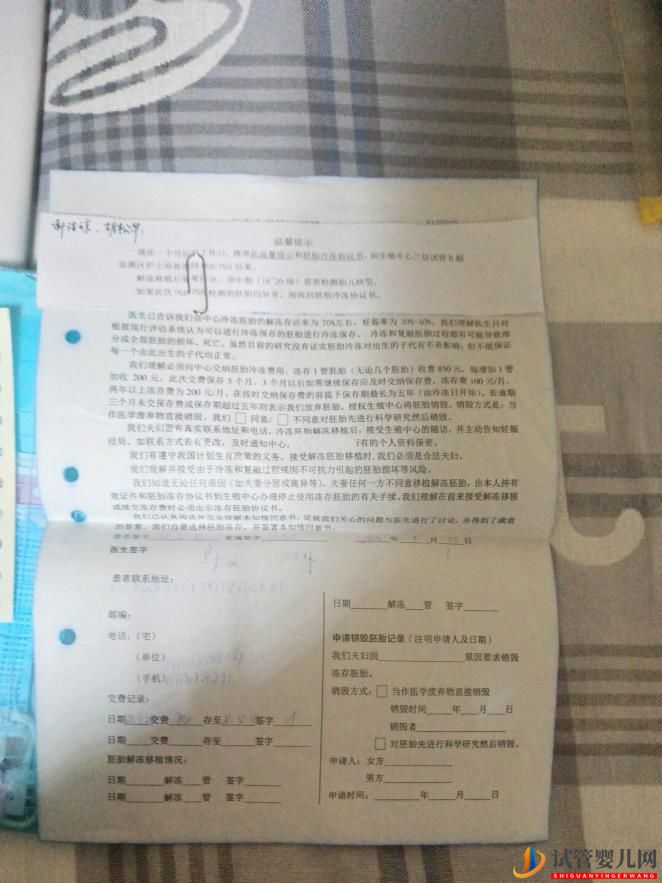 温馨提示
请在一个月后的工作日，携带此温馨提示和胚胎冷冻协议书，到生殖中心三层试管B超
监测区护士站处 PGD/PGS 结果。
解冻移植后如果怀孕，孕中期（16~20周）需要检测胎儿核型。
如果此次PGD/PGS检测的胚胎均异常，则收回胚胎冷冻协议书。
医生已告诉我们该中心冷冻胚胎的解冻存活率为70%左右，妊娠率为30%-40%。我们理解医生只对
根据现行评估系统认为可以进行冷冻保存的胚胎进行冷冻保存，冷冻和复融胚胎过程都有可能导致部
分或全部胚胎的损坏、死亡。虽然目前的研究没有证实胚胎冷冻对出生的子代有不良影响，但不能保证
每一个由此出生的子代均正常。
我们理解必须向中心交纳胚胎冷冻费用，冻存1管胚胎（无论几个胚胎）收费850元，每增加1管
加收200元。此次交费保存3个月，3个月以后如需继续保存应及时交纳保存费，冻存费100元/月，
两年以上冻存费为200元/月。在按时交纳保存费的前提下保存期最长为五年（由冷冻日开始）。若逾期
三个月未交保存费或保存期超过五年则表示我们放弃胚胎，授权生殖中心将胚胎销毁。销毁方式是：当
作医学废弃物直接销毁。我们□同意/□不同意对胚胎先进行科学研究然后销毁。
我们夫妇留有真实联系地址和电话，冷冻胚胎解冻移植后，接受生殖中心的随访，并主动告知妊娠
结局。如联系方式若有更改，及时通知中心。 有的个人资料保密。
我们有遵守我国计划生育政策的义务。接受解冻胚胎移植时，我们必须是合法夫妇。
我们理解并接受由于冷冻和复融过程或因不可抗力引起的胚胎损坏等风险。
我们知道无论任何原因（如夫妻分居或离异等），夫妻任何一方不同意移植解冻胚胎，由本人持有
效证件和胚胎冻存协议书到生殖中心办理停止使用冻存胚胎的有关手续。我们理解在前来接受解冻移植
或续交冻存费时必须出示冻存胚胎协议书。
我们已认真阅读并完全理解本知情同意书，还就我们关心的问题与医生进行了讨论，并得到了满意
的答复。我们自愿选择胚胎冻存，并签署本知情同意书。
医生签字
患者联系地址：
邮编：
电话：（宅）
（单位）
（手机）
交费记录：
日期 交费 存至 签字
日期____交费____存至____签字____
胚胎解冻移植情况：
日期____解冻____管 签字____
日期____解冻____管 签字____
日期____解冻____管 签字____
申请销毁胚胎记录（注明申请人及日期）
我们夫妇因____原因要求销毁
冻存胚胎。
销毁方式：□当作医学废弃物直接销毁
销毁时间____年____月____日
销毁者____
□对胚胎先进行科学研究然后销毁。
申请人：女方____
男方____
申请时间：____年____月____日
试管婴儿网
SHIGUANYINGERWANG